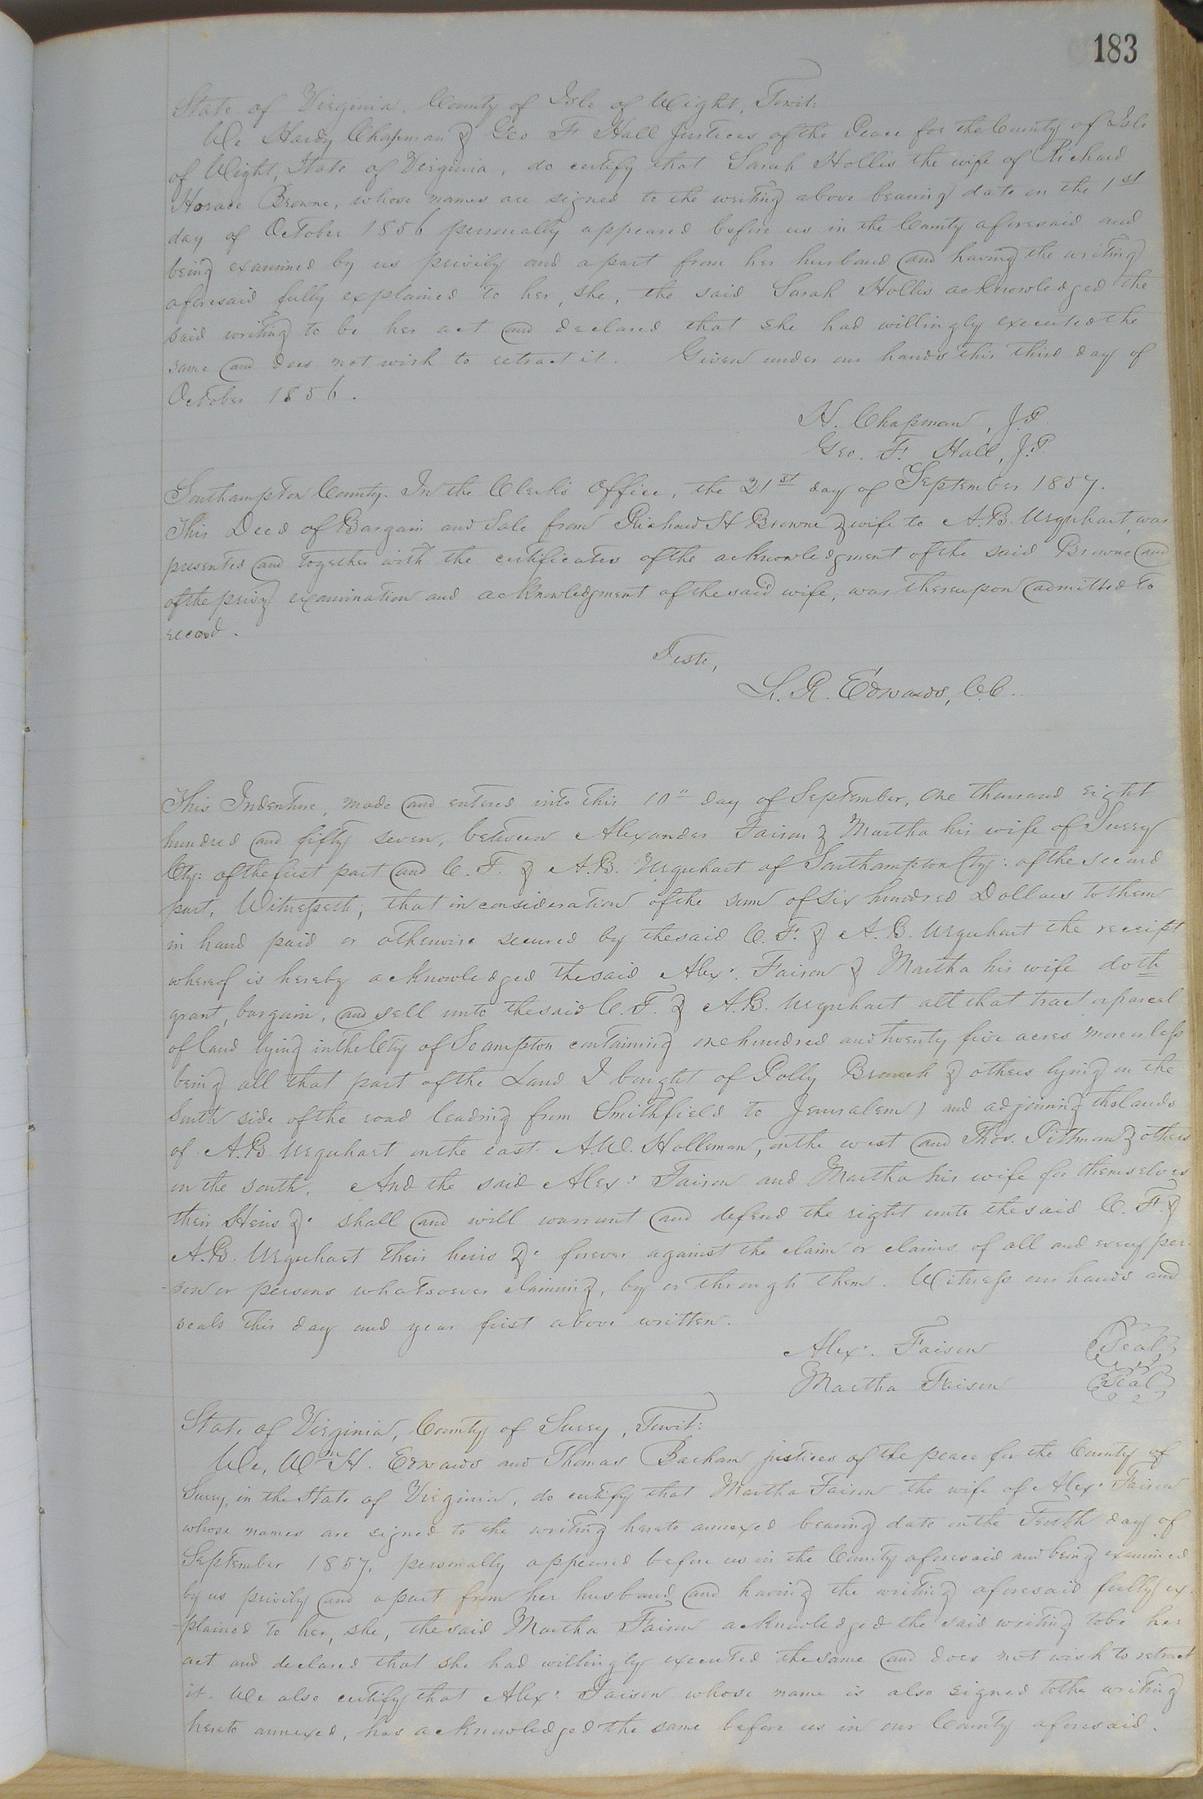 183
State of Virginia, County of Isle of Wight, Towit:
We Hardy Chapman & Geo F. Hall Justices of the Peace for the County of Isle
of Wight, State of Virginia, do certify that Sarah Hollis the wife of Richard
Horace Browne, whose names are signed to the writing above bearing date on the 1st
day of October 1856 personally appeared before us in the County aforesaid and
being examined by us privily and apart from her husband and having the writing
aforesaid fully explained to her, she, the said Sarah Hollis acknowledged the
said writing to be her act and declared that she had willingly executed the
same and does not wish to retract it. Given under our hands this third day of
October 1856.
H. Chapman, J.P.
Geo. F. Hall, J.P.
Southampton County. In the Clerk's Office, the 21st day of September 1857.
This Deed of Bargain and Sale from Richard H Browne & wife to A.B. Urquhart, was
presented and together with the certificates of the acknowledgment of the said Browne and
of the privy examination and acknowledgment of the said wife, was thereupon admitted to
record.
Teste,
L. R. Edwards, C.C.
This Indenture, made and entered into this 10" day of September, One thousand eight
hundred and fifty seven, between Alexander Faison & Martha his wife of Surry
Cty: of the first part and C. F. & A.B. Urquhart of Southampton Cty: of the second
part, Witnesseth, that in consideration of the sum of six hundred Dollars to them
in hand paid or otherwise secured by the said C. F. & A. B. Urquhart the receipt
whereof is hereby acknowledged the said Alexr. Faison & Martha his wife doth
grant, bargain, and sell unto the said C. F. & A.B. Urquhart all that tract or parcel
of land lying in the Cty of Soampton containing one hundred and twenty five acres more or less
being all that part of the Land I bought of Polly Branch & others lying on the
South side of the road leading from Smithfield to Jerusalem) and adjoining the lands
of A.B. Urquhart on the east. A.W. Holleman, on the west and Thos. Pittman & others
on the south. And the said Alexr. Faison and Martha his wife for themselves
their Heirs &c shall and will warrant and defend the right unto the said C. F. &
A.B. Urquhart their heirs &c forever against the claim or claims of all and every per-
-son or persons whatsoever claiming, by or through them. Witness our hands and
seals this day and year first above written.
Alexr. Faison Seal
Martha Faison Seal
State of Virginia, County of Surry, Towit:
We, Wm H. Edwards and Thomas Barham justices of the peace for the County of
Surry, in the State of Virginia, do certify that Martha Faison the wife of Alexr Faison
whose names are signed to the writing hereto annexed bearing date on the Tenth day of
September 1857, personally appeared before us in the County aforesaid and being examined
by us privily and apart from her husband and having the writing aforesaid fully ex
-plained to her, she, the said Martha Faison acknowledged the said writing to be her
act and declared that she had willingly executed the same and does not wish to retract
it. We also certify that Alexr. Faison whose name is also signed to the writing
hereto annexed, has acknowledged the same before us in our County aforesaid.